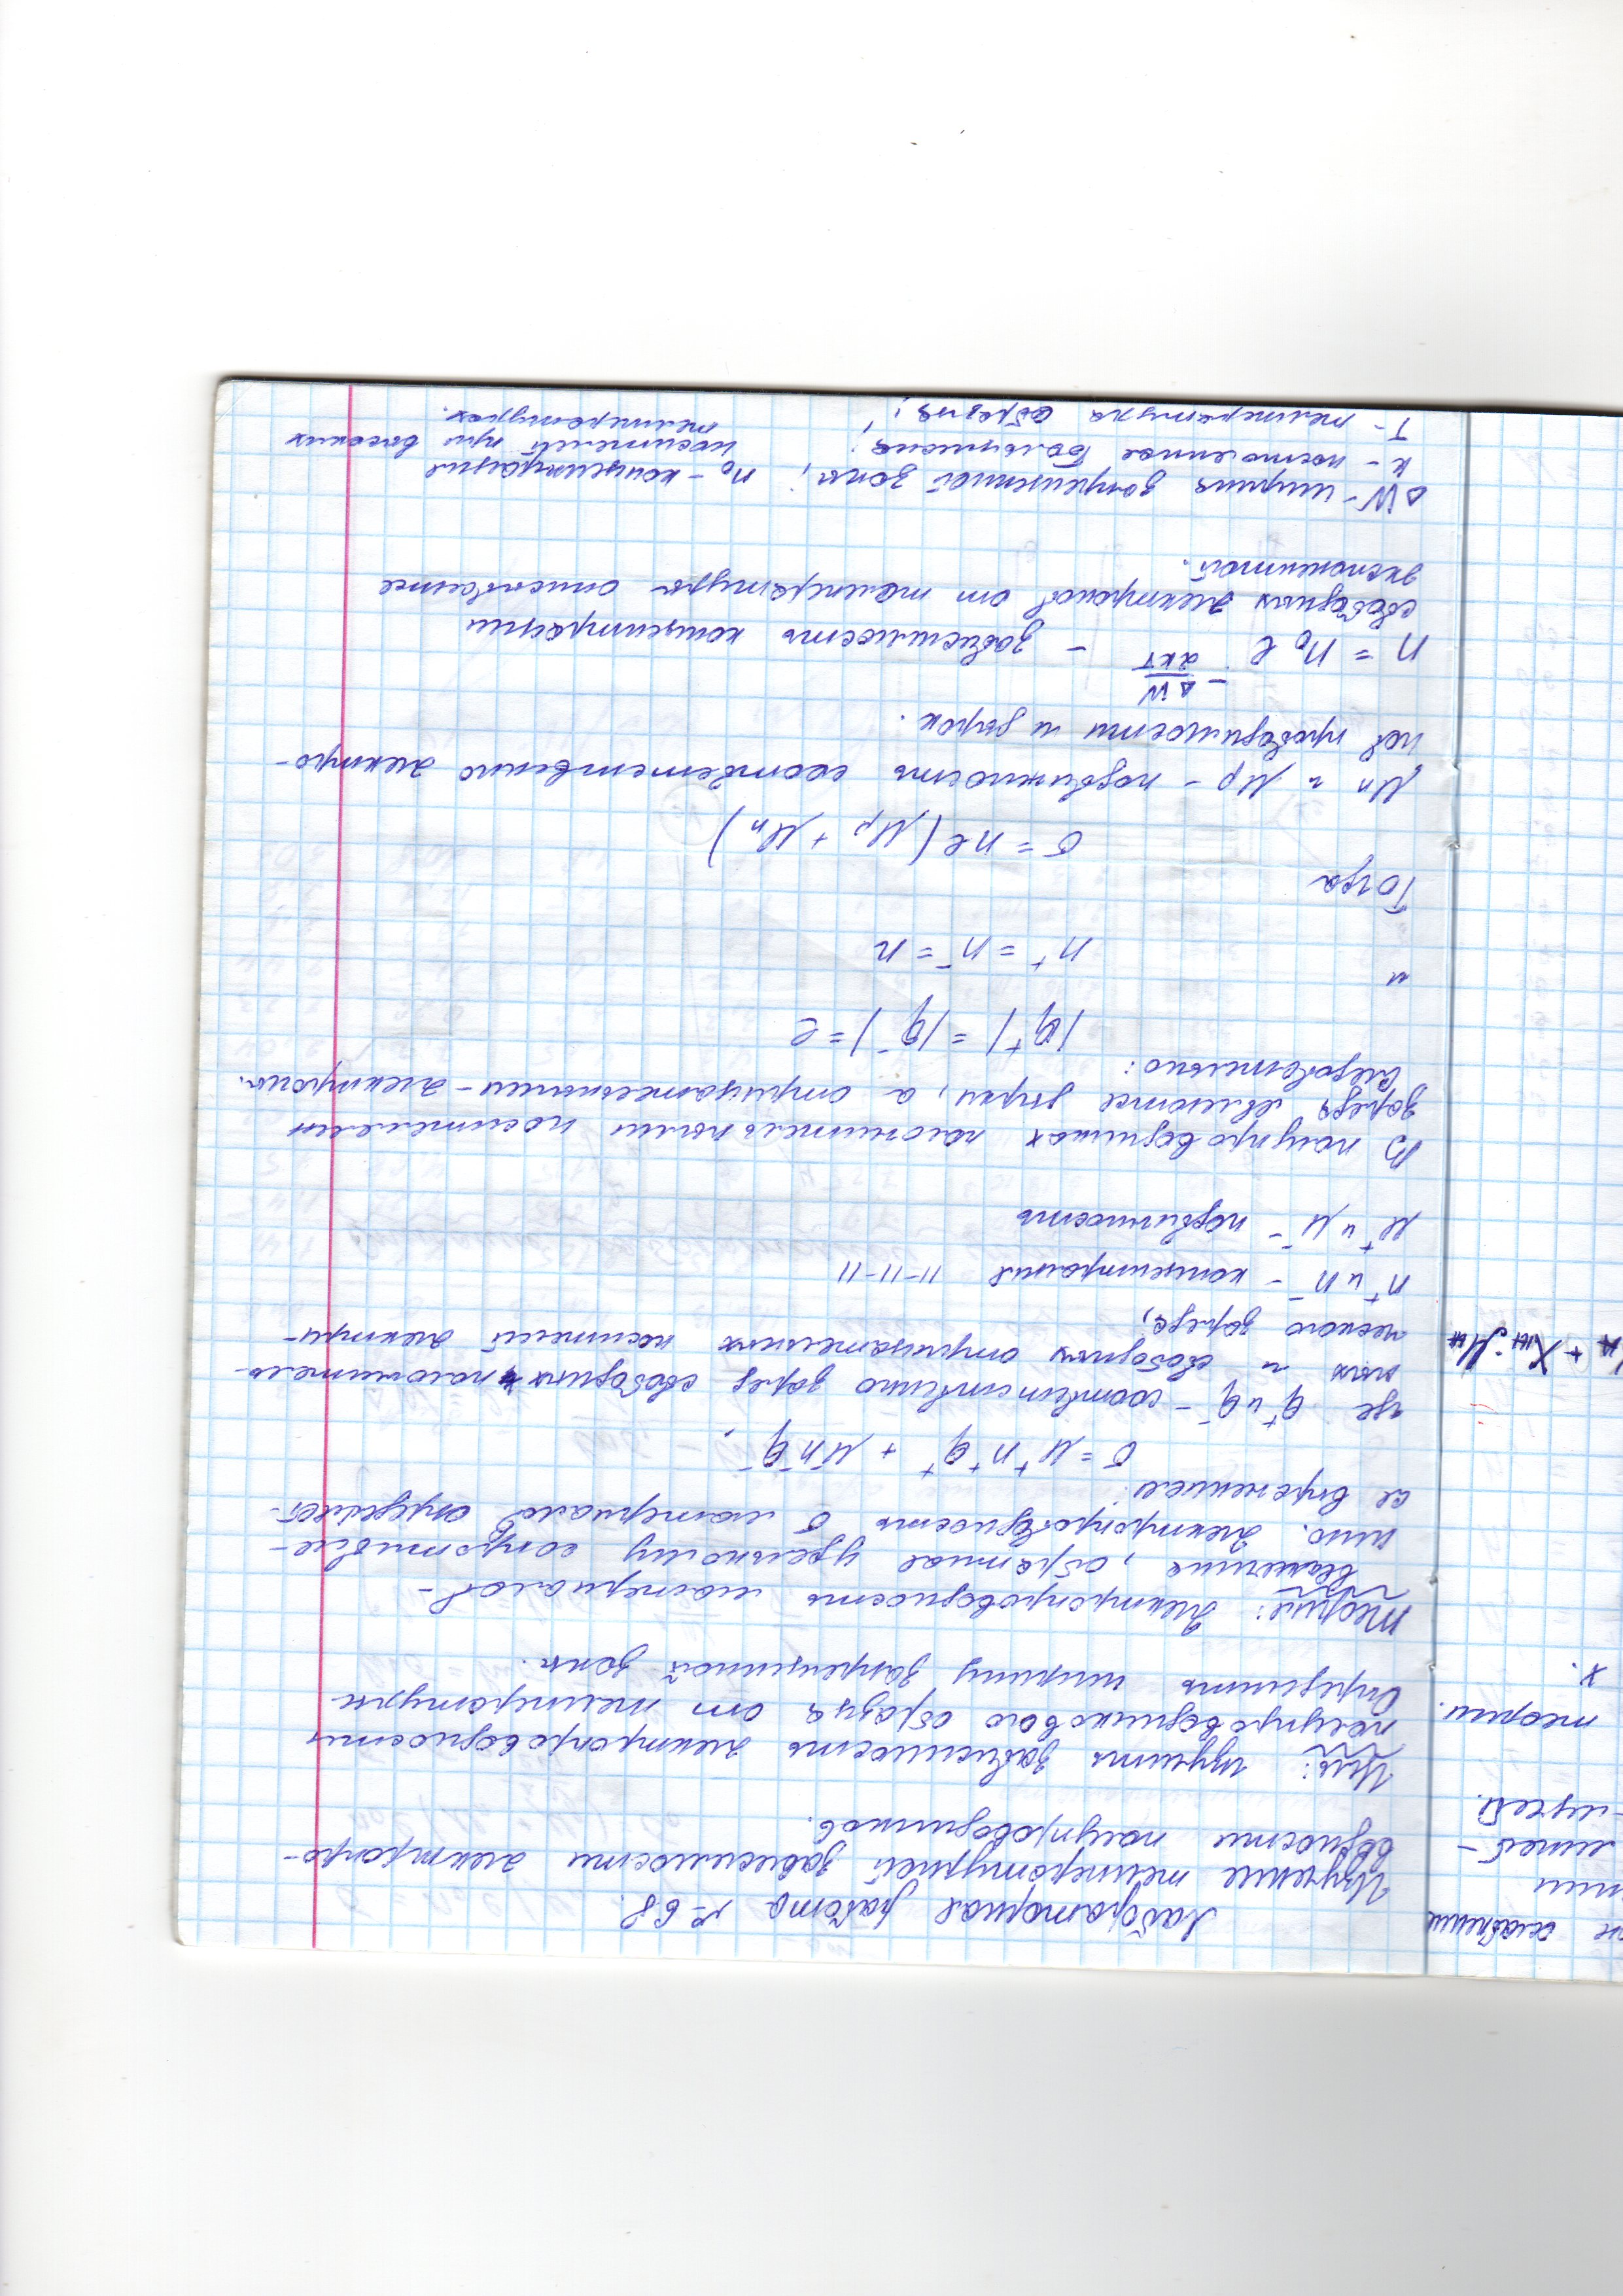 ослабление
лучей.
теории.
х.
Лабораторная работа № 68.
Изучение температурной зависимости электропро-
водности полупроводников.
Цель: изучить зависимость электропроводности
полупроводникового образца от температуры.
Определить ширину запрещенной зоны.
Теория: Электропроводность материалов -
величина, обратная удельному сопротивле-
нию. Электропроводность σ материалов определяет-
ся выражением:
σ = μ⁺n⁺q⁺ + μ⁻n⁻q⁻,
где q⁺ и q⁻ - соответственно заряд свободных положитель-
ных и свободных отрицательных носителей электри-
ческого заряда,
n⁺ и n⁻ - концентрация 11-11-11
μ⁺ и μ⁻ - подвижность
В полупроводниках положительными носителями
заряда являются дырки, а отрицательными - электроны.
Следовательно:
|q⁺| = |q⁻| = e
и
n⁺ = n⁻ = n
Тогда
σ = ne(μp + μn)
μn и μp - подвижность соответственно электро-
нов проводимости и дырок.
n = n₀ e^(-ΔW/2кТ) - зависимость концентрации
свободных электронов от температуры описывается
экспонентой.
ΔW - ширина запрещенной зоны; n₀ - концентрация
к - постоянная Больцмана; носителей при высоких
Т - температура образца; температурах.